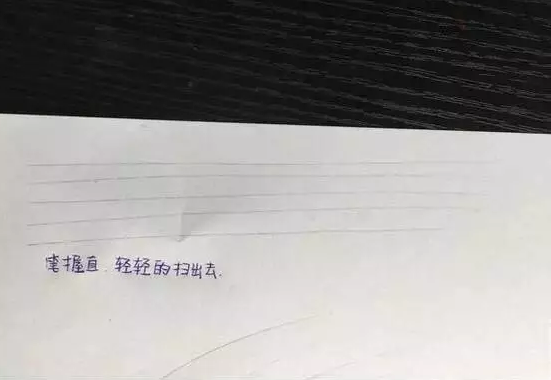 笔握直 轻轻的扫出去.